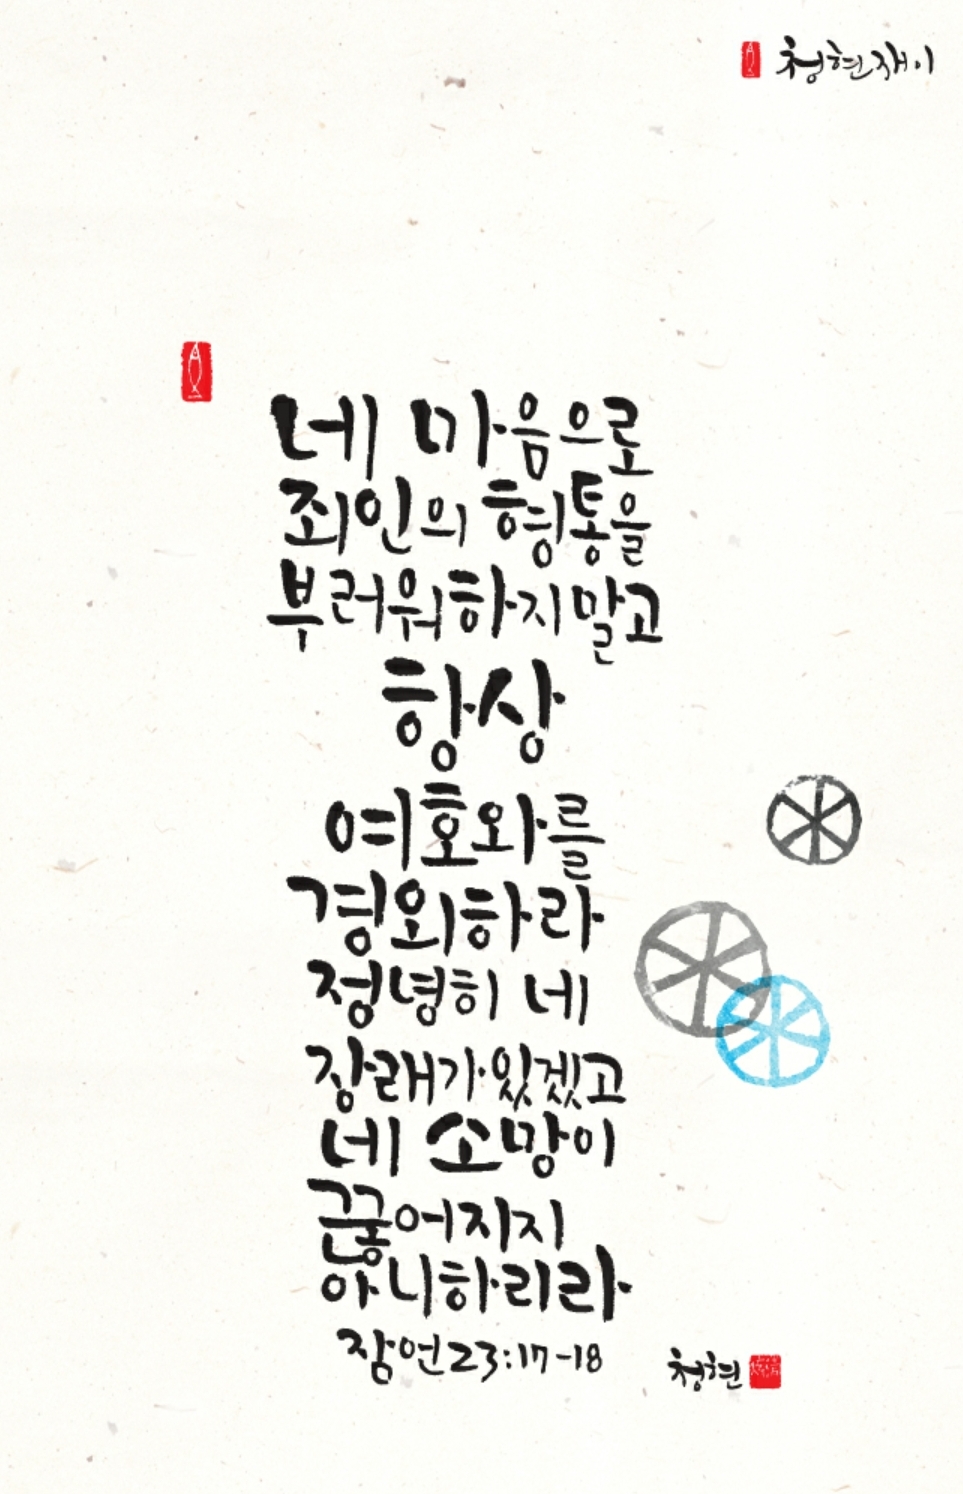 청현재이
네 마음으로
죄인의 형통을
부러워하지말고
항상
여호와를
경외하라
정녕히 네
장래가있겠고
네 소망이
끊어지지
아니하리라
잠언23:17-18
청현